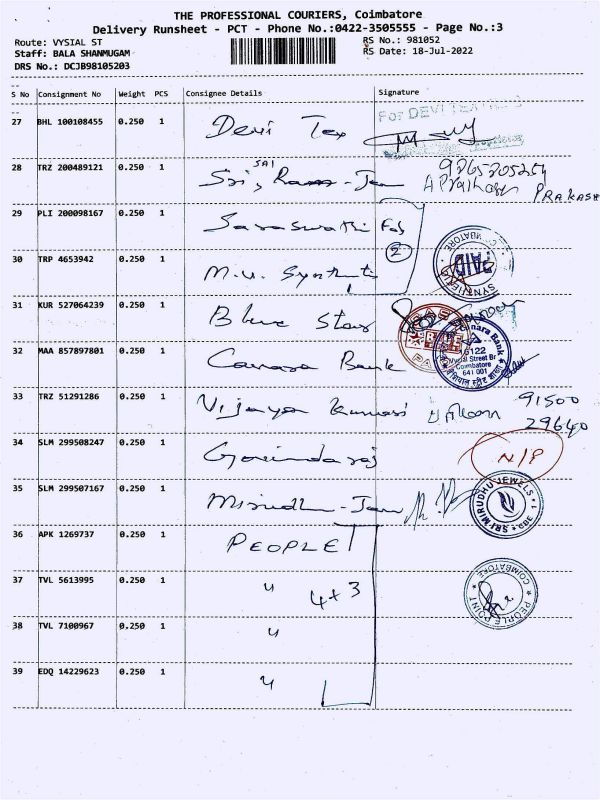 THE PROFESSIONAL COURIERS, Coimbatore
Delivery Runsheet - PCT - Phone No.:0422-3505555 - Page No.:3
Route: VYSIAL ST RS No.: 981052
Staff: BALA SHANMUGAM RS Date: 18-Jul-2022
DRS No.: DCJB98105203
S No Consignment No Weight PCS Consignee Details Signature
For DEVI TEX
27 BHL 100108455 0.250 1 Devi Tex
28 TRZ 200489121 0.250 1 Sri Sai
PRAKASH
29 PLI 200098167 0.250 1 Saraswathi Fab
2
30 TRP 4653942 0.250 1 M.U. Synthetic
COIMBATORE PAID
31 KUR 527064239 0.250 1 Blue Star
32 MAA 857897801 0.250 1 Canara Bank
Canara Bank
6122
Vysial Street Br
Coimbatore
641 001
33 TRZ 51291286 0.250 1 Vijaya Kumari 91500
29640
34 SLM 299508247 0.250 1 Govindaraj N/P
35 SLM 299507167 0.250 1 Mirudhu Jew
SRI MIRUDHU JEWELS CBE-1
36 APK 1269737 0.250 1 PEOPLE
37 TVL 5613995 0.250 1 " 4+3
PEOPLE POINT COIMBATORE
38 TVL 7100967 0.250 1 "
39 EDQ 14229623 0.250 1 "